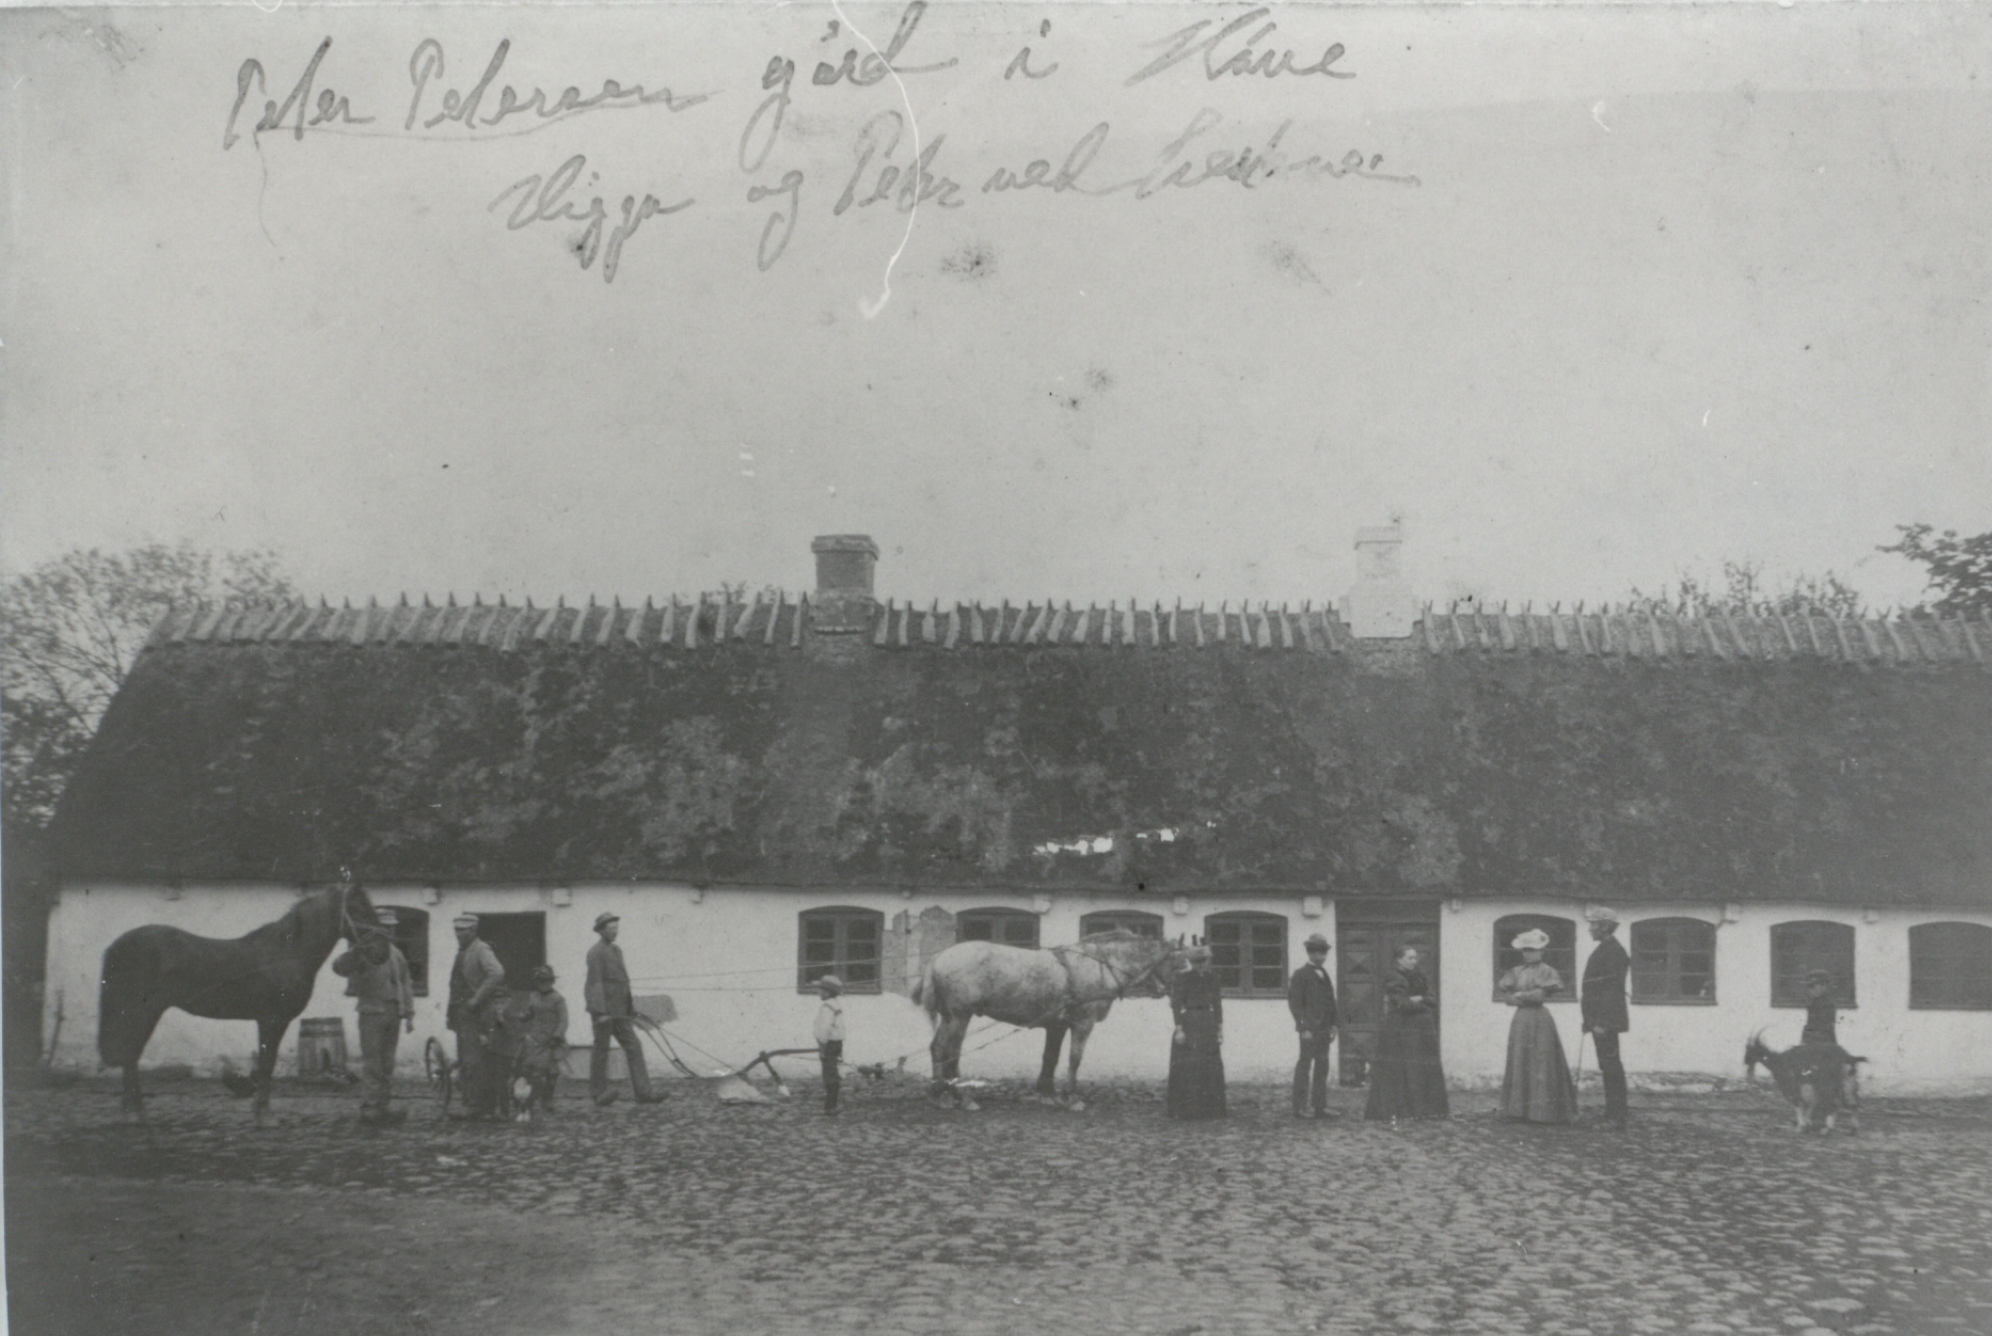 Peter Petersen gård i Håve
Viggo og Peter ved hestene